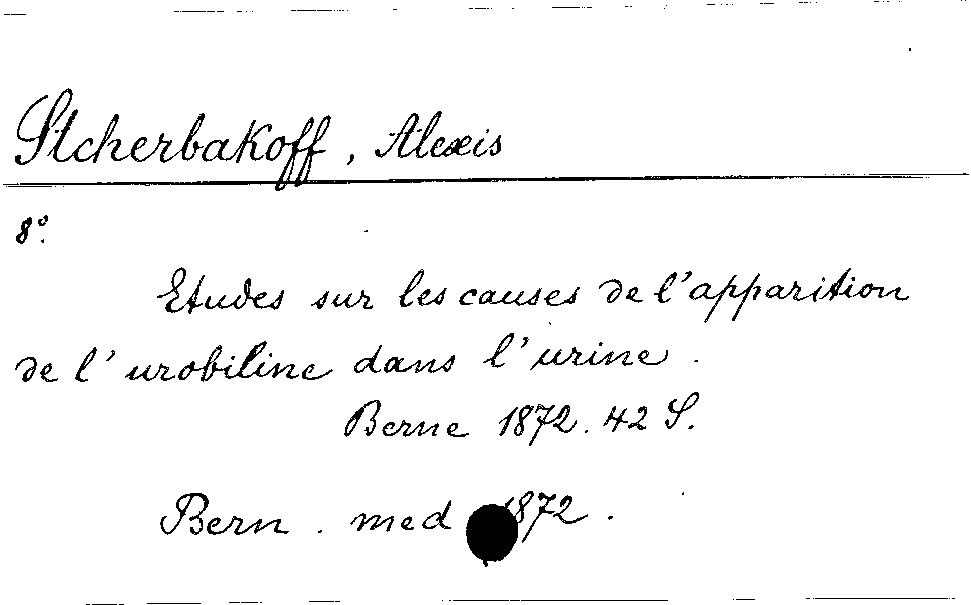 Stcherbakoff, Alexis
8°.
Etudes sur les causes de l'apparition
de l'urobiline dans l'urine.
Berne 1872. 42 S.
Bern. med 1872.